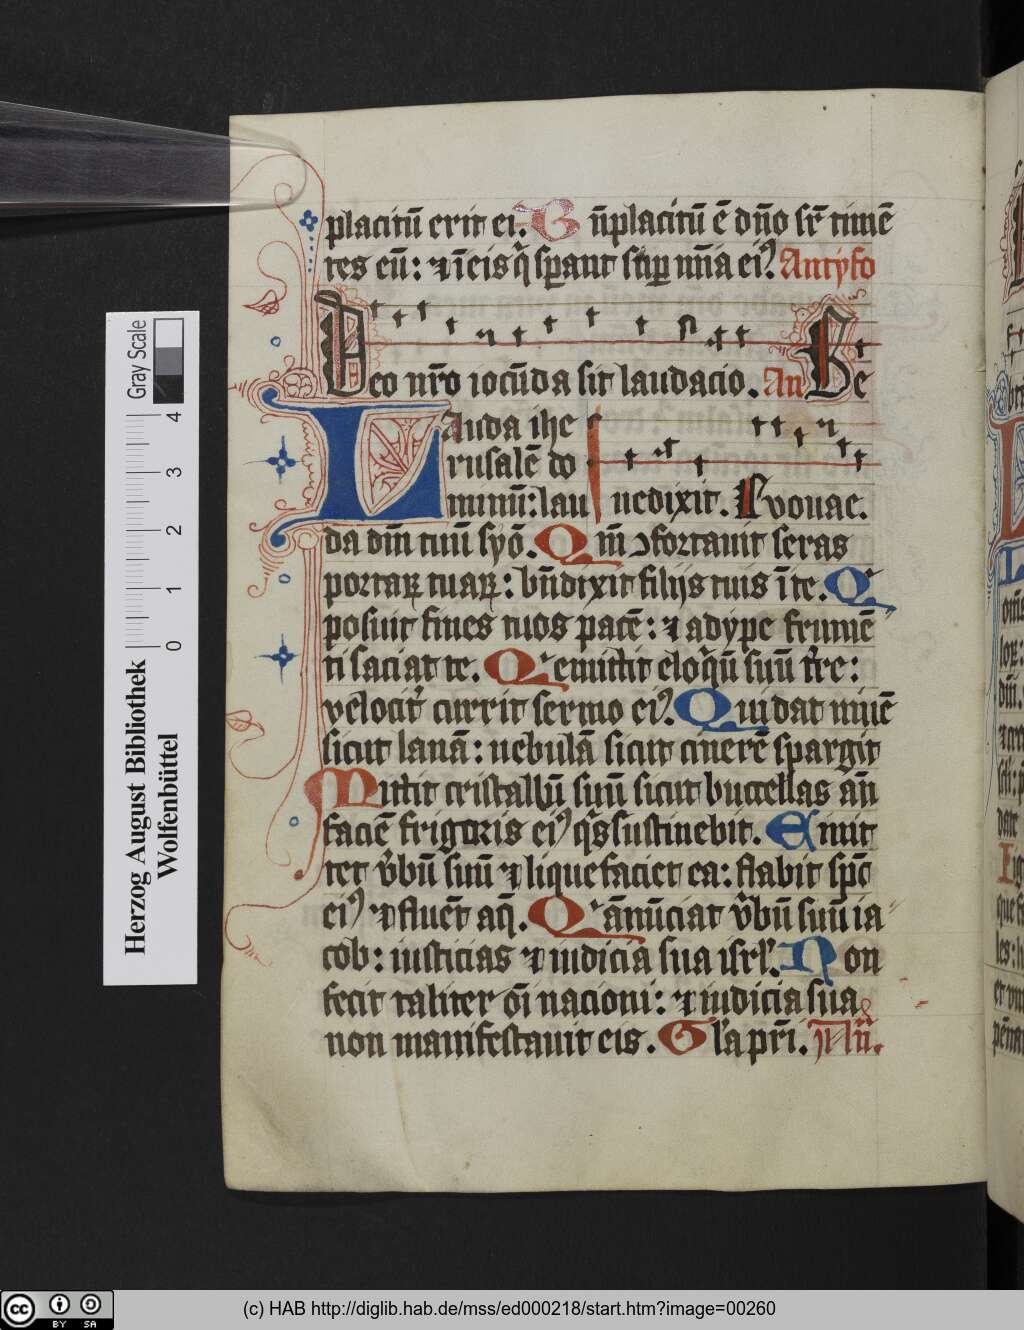 placitū erit ei. B n̄placitū ē dn̄o sr̄ timē
tes eū: ⁊ ī eis q̇ sꝑant suꝑ mīa eiꝰ. Antyfo
Deo nr̄o iocūda sit laudacio. An Be
Lauda ihe
rusalē do
minū: lau nedixit. Evouae.
da dm̄ tuū syō. Qm̄ ↄfortauit seras
portaꝝ tuaꝝ: bn̄dixit filijs tuis ī te. Q
posuit fines tuos pacē: ⁊ adype frumē
ti saciat te. Q emittit eloq̄ū suū tr̄e:
velocit̓ currit sermo eiꝰ. Qui dat niuē
sicut lanā: nebulā sicut cinerē spargit
Mittit cristallū suū sicut buccellas an̄
faciē frigoris eiꝰ qͥs sustinebit. Emit
tet v̓bū suū ⁊ liquefaciet ea: flabit spc̄
eiꝰ ⁊ fluēt aq̄. Q ānūciat v̓bū suū ia
cob: iusticias ⁊ iudicia sua isrl̓. Non
fecit taliter oī nacioni: ⁊ iudicia sua
non manifestauit eis. Gl̓a pr̄i. An̄.
Herzog August Bibliothek
Wolfenbüttel
0 1 2 3 4
Gray Scale
cc BY SA
(c) HAB http://diglib.hab.de/mss/ed000218/start.htm?image=00260